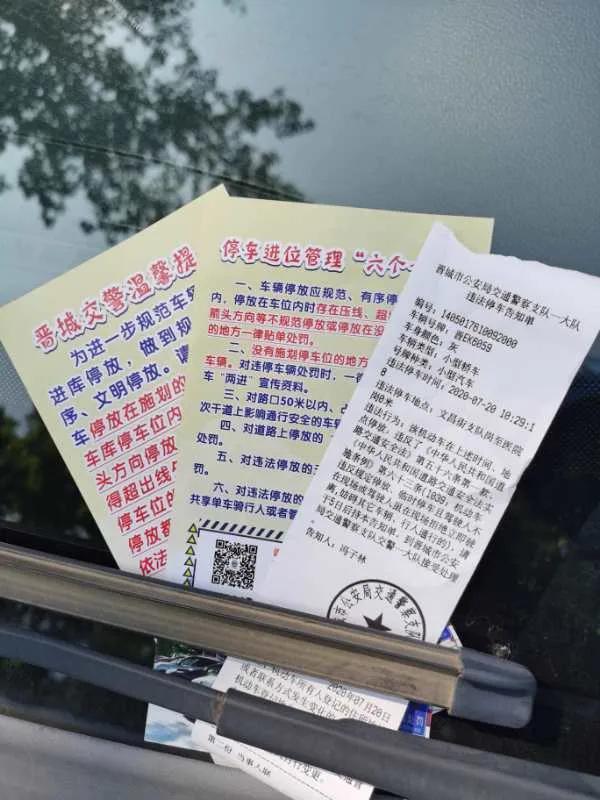 晋城交警温馨提
为进一步规范车
进库停放，做到规
序、文明停放。请
车停放在施划的
车库停车位内
头方向停放
得超出线
停车位的
停放都
依法
停车进位管理“六个
一、车辆停放应规范、有序停
内，停放在车位内时存在压线、超
箭头方向等不规范停放或停放在没
的地方一律贴单处罚。
二、没有施划停车位的地方
车辆。对违停车辆处罚时，一律
车“两进”宣传资料。
三、对路口50米以内、占
次干道上影响通行安全的车辆
四、对道路上停放的“
处罚。
五、对违法停放的
罚。
六、对违法停放的
共享单车骑行人或者管
晋城市公安局交通警察支队一大队
违法停车告知单
编号：1405017810092000
车辆号牌：晋EK0059
车身颜色：灰
车辆类型：小型轿车
号牌种类：小型汽车
违法停车时间：2020-07-20 10:29:1
8
违法停车地点：文昌街支队岗至医院
岗0米
违法行为：该机动车在上述时间、地
点停放，违反了《中华人民共和国道
路交通安全法》第五十六条第一款、
《中华人民共和国道路交通安全法实
施条例》第六十三条(1039，机动车
违反规定停放、临时停车且驾驶人不
在现场或驾驶人虽在现场拒绝立即驶
离，妨碍其它车辆、行人通行的)，请
于5日后持本告知单，到晋城市公安
局交通警察支队交警一大队接受处理
告知人：冯子林
城市公安局交通警察支队
2020年07月20日
机动车所有人登记的住所地
或者联系方式发生变化的
机动车登记
行变更。
第一份 当事人联